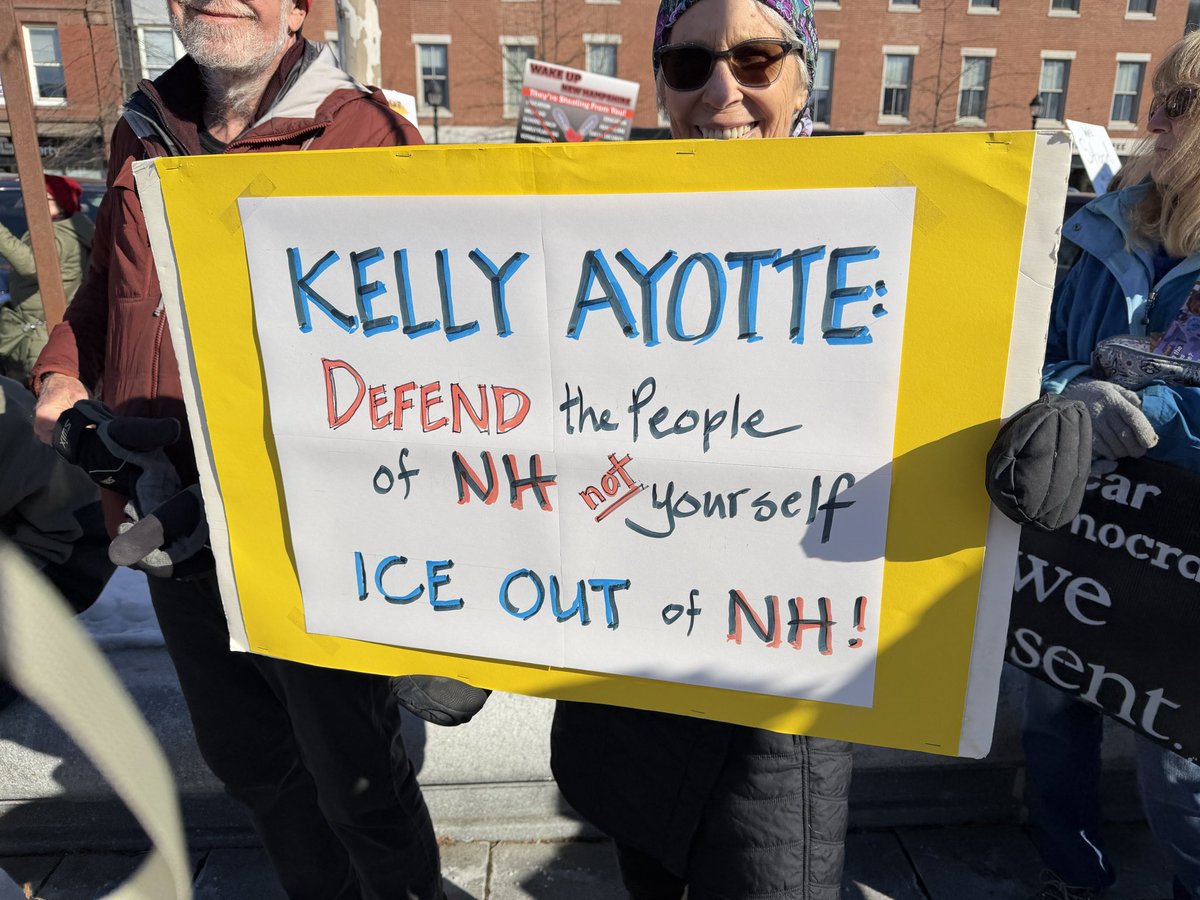 WAKE UP
NEW HAMPSHIRE
They're Stealing From You!
KELLY AYOTTE:
DEFEND the People
of NH not yourself
ICE OUT of NH!
ear
mocra
we
sent.